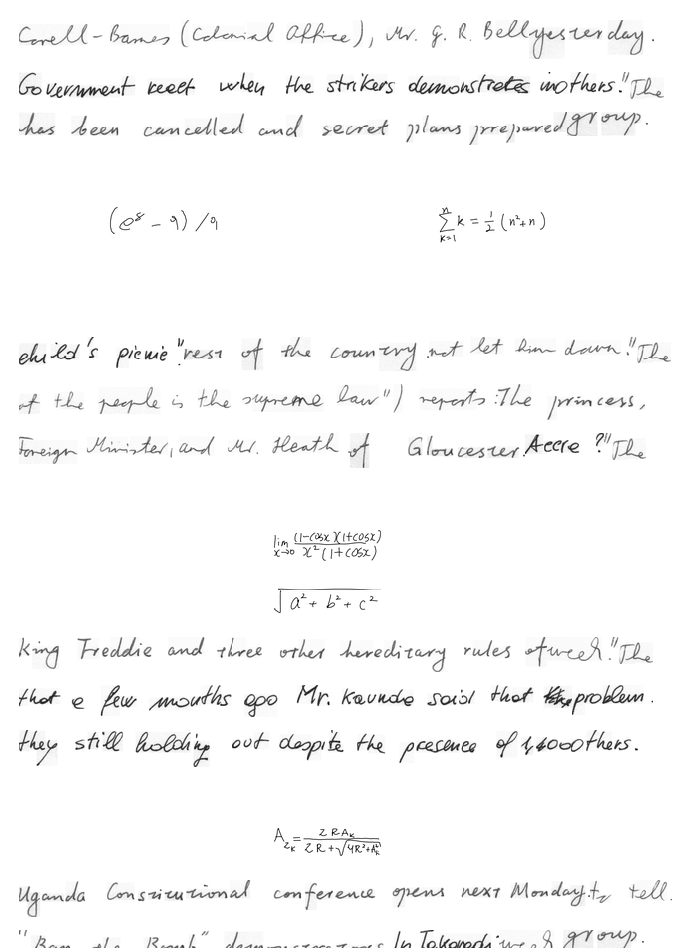 Corell-Barnes (Colonial Office), Mr. G. R. Bellyesterday.
Government react when the strikers demonstrates inothers." The
has been cancelled and secret plans prepared group.
(e^8 - 9) / 9
\sum_{k=1}^{n} k = \frac{1}{2} (n^2+n)
child's picnic "rest of the country not let him down." The
of the people is the supreme law") reports: The princess,
Foreign Minister, and Mr. Heath of Gloucester. Accra ?" The
\lim_{x \to 0} \frac{(1-\cos x)(1+\cos x)}{x^2 (1+\cos x)}
\sqrt{a^2 + b^2 + c^2}
King Freddie and three other hereditary rules of week." The
that a few months ago Mr. Kaunda said that problem.
they still holding out despite the presence of 1,400 others.
A_{2k} = \frac{2RA_k}{2R + \sqrt{4R^2 + A_k^2}}
Uganda Constitutional conference opens next Monday. to tell.
"Ban the Bomb" demonstrators In Takoradi week group.